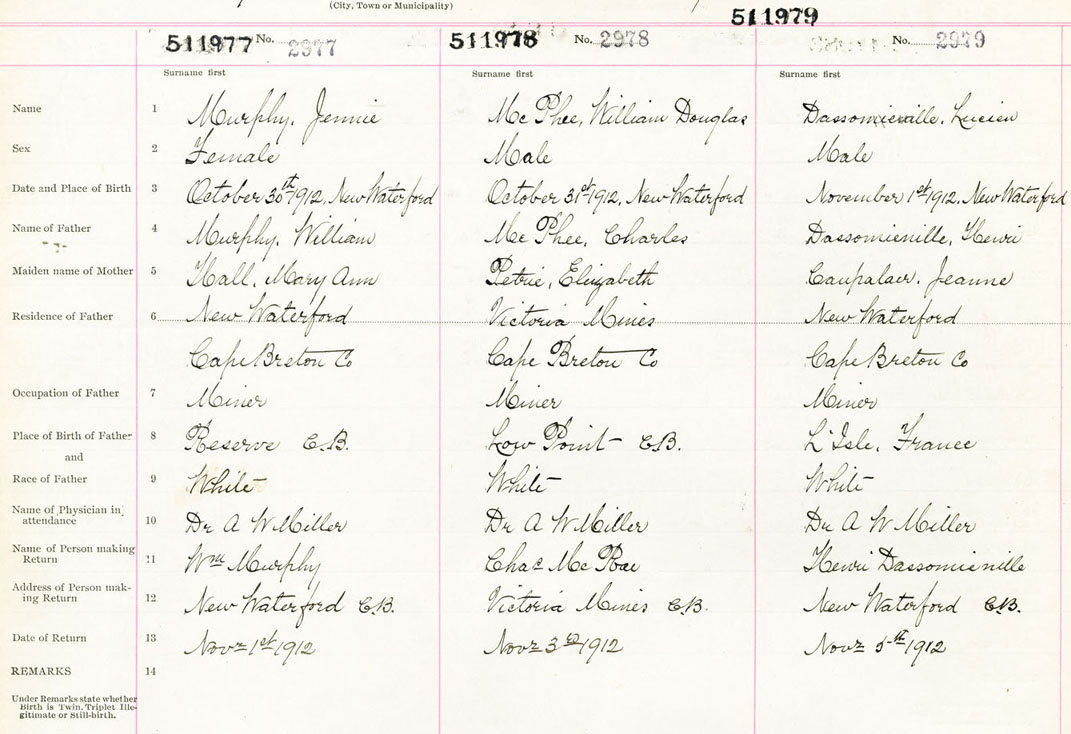 (City, Town or Municipality)
511977 No. 2977 511978 No. 2978 511979 No. 2979
Surname first Surname first Surname first
Name 1 Murphy, Jennie Mc Phee, William Douglas Dassomieville, Lucien
Sex 2 Female Male Male
Date and Place of Birth 3 October 30th 1912, New Waterford October 31st 1912, New Waterford November 1st 1912, New Waterford
Name of Father 4 Murphy, William Mc Phee, Charles Dassomienville, Henri
Maiden name of Mother 5 Hall, Mary Ann Petrie, Elizabeth Jeanne
Residence of Father 6 New Waterford Victoria Mines New Waterford
Cape Breton Co Cape Breton Co Cape Breton Co
Occupation of Father 7 Miner Miner Miner
Place of Birth of Father 8 Reserve C.B. Low Point C.B. L'Isle, France
and
Race of Father 9 White White White
Name of Physician in
attendance 10 Dr A W Miller Dr A W Miller Dr A W Miller
Name of Person making
Return 11 Wm Murphy Chas Mc Henri Dassomienville
Address of Person mak-
ing Return 12 New Waterford C.B. Victoria Mines C.B. New Waterford C.B.
Date of Return 13 Novr 1st 1912 Novr 3rd 1912 Novr 5th 1912
REMARKS 14
Under Remarks state whether
Birth is Twin, Triplet Ille-
gitimate or Still-birth.